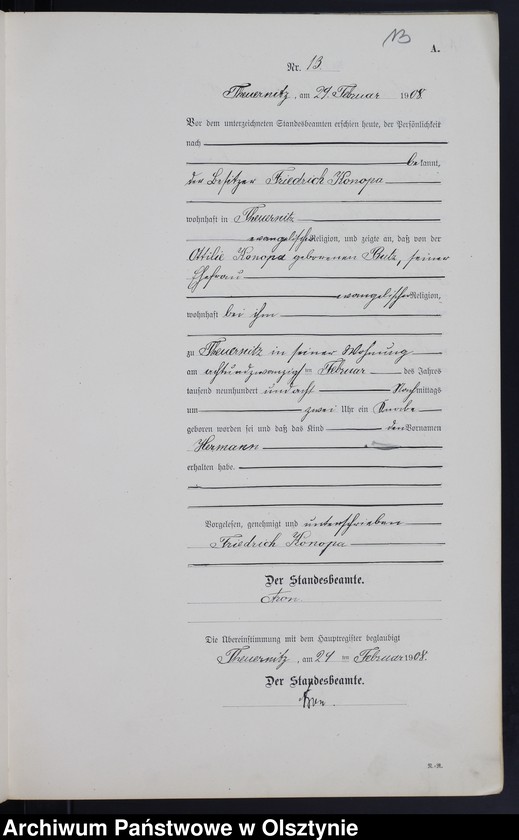 NB
A.
Nr. 13.
Theuernitz, am 24. Februar 1908.
Vor dem unterzeichneten Standesbeamten erschien heute, der Persönlichkeit
nach
bekannt,
der Besitzer Friedrich Konopa
wohnhaft in Theuernitz
evangelischer Religion, und zeigte an, daß von der
Ottilie Konopa geborenen Butz, seiner
Ehefrau
evangelischer Religion,
wohnhaft bei ihm
zu Theuernitz in seiner Wohnung
am Februar des Jahres
tausend neunhundert undacht Nachmittags
um zwei Uhr ein Knabe
geboren worden sei und daß das Kind den Vornamen
Hermann
erhalten habe.
Vorgelesen, genehmigt und unterschrieben
Friedrich Konopa
Der Standesbeamte.
Die Übereinstimmung mit dem Hauptregister beglaubigt
Theuernitz, am 24 ten Februar 1908.
Der Standesbeamte.
Archiwum Państwowe w Olsztynie